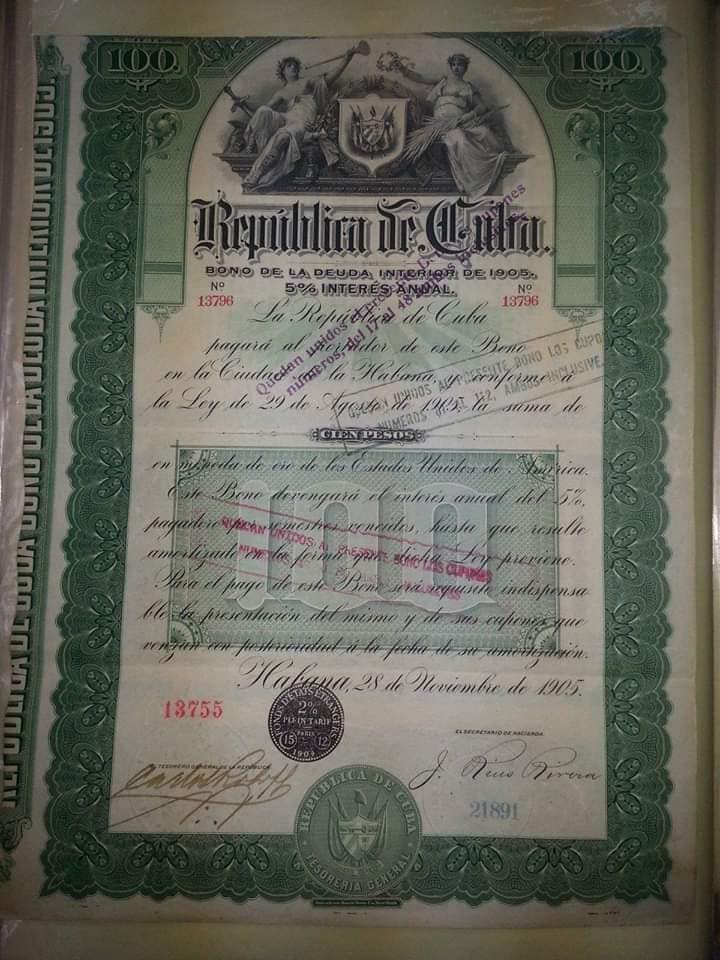 100.
100.
República de Cuba.
BONO DE LA DEUDA INTERIOR DE 1905.
5% INTERÉS ANUAL.
Nº
13796
Nº
13796
La República de Cuba
pagará al portador de este Bono
en la Ciudad de la Habana, y conforme á
la Ley de 29 de Agosto de 1905, la suma de
CIEN PESOS
en moneda de oro de los Estados Unidos de América.
Este Bono devengará el interés anual del 5%,
pagadero por semestres vencidos, hasta que resulte
amortizado en la forma que dicha Ley previene.
Para el pago de este Bono será requisito indispensa
ble la presentación del mismo y de sus cupones que
venzan con posterioridad á la fecha de su amortización.
100
Habana, 28 de Noviembre de 1905.
Quedan unidos al
números, del 17 al 48
QUEDAN UNIDOS AL PRESENTE BONO LOS CUPO
NUMEROS AL 112, AMBOS INCLUSIVE
QUEDAN UNIDOS AL PRESENTE BONO LOS CUPONES
13755
FONDS D'ETATS ETRANGERS
2%
PLEIN TARIF
PARIS
15 12
1909
EL TESORERO GENERAL DE LA REPÚBLICA
Carlos Roloff
EL SECRETARIO DE HACIENDA
J. Rius Rivera
21891
REPUBLICA DE CUBA
TESORERIA GENERAL
REPÚBLICA DE CUBA BONO DE LA DEUDA INTERIOR DE 1905.